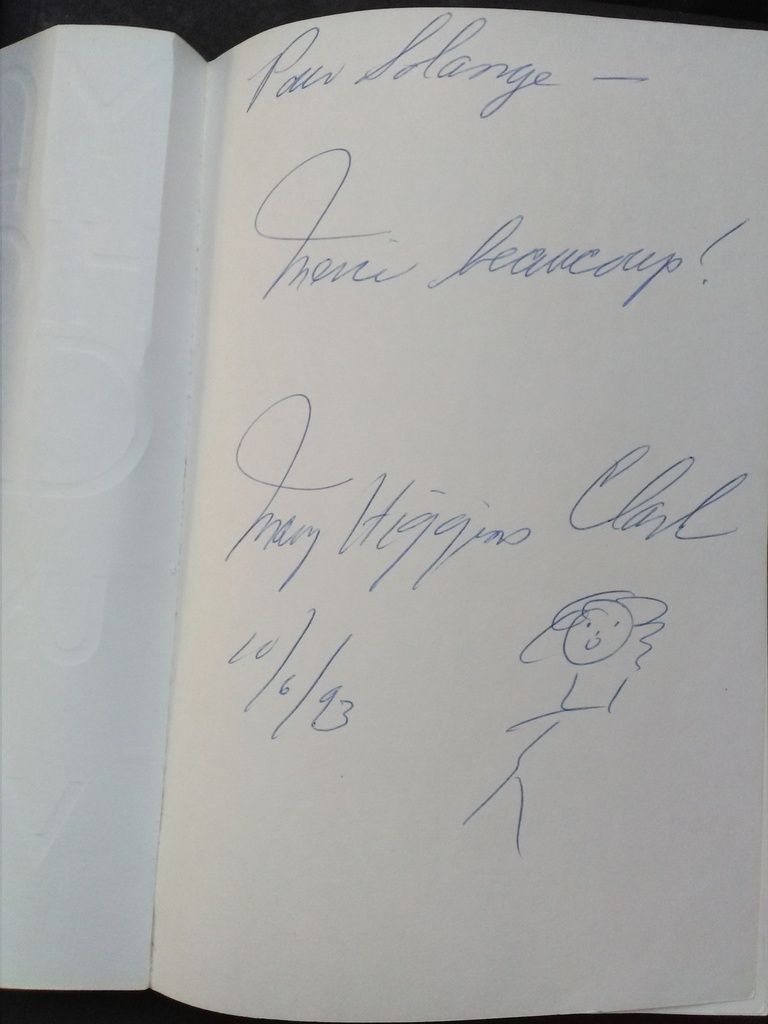 Pour Solange —
Merci beaucoup!
Mary Higgins Clark
10/6/93